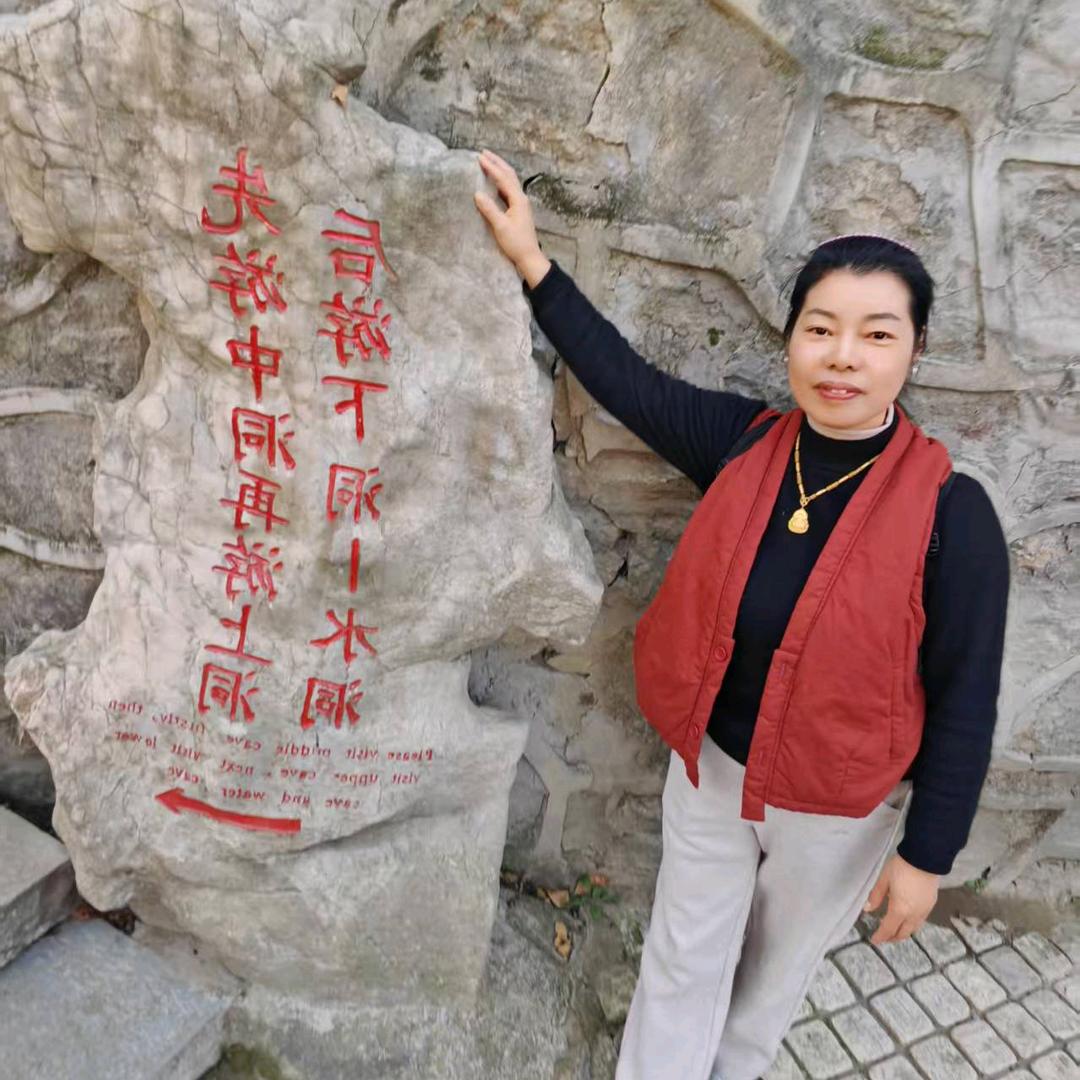 先游中洞再游上洞
后游下洞—水洞
Please visit middle cave firstly, then
visit upper cave, next visit lower
cave and water cave